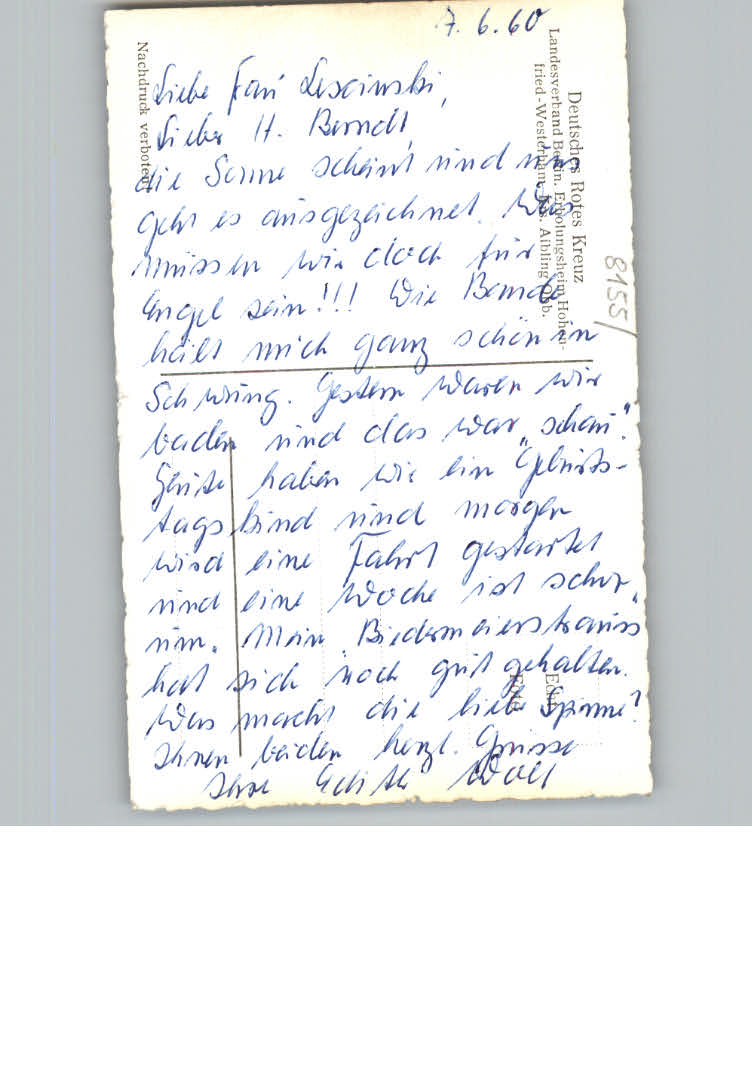 7. 6. 60
Liebe Frau Lescinski,
Lieber H. Berndt
die Sonne scheint und uns
geht es ausgezeichnet. Was
müssen wir doch für
Engel sein!!! Die Bande
hält mich ganz schön in
Schwung. Gestern waren wir
baden und das war „schau".
Heute haben wir ein Geburts-
tagskind und morgen
wird eine Fahrt gestartet
und eine Woche ist schon
um. Mein Biedermeierstrauss
hat sich noch gut gehalten.
Was macht die liebe Spinne?
Ihnen beiden herzl. Grüsse
Ihre Edith Woll
Deutsches Rotes Kreuz
Landesverband Berlin, Erholungsheim Hohen-
fried-Westerham, Krs. Aibling Obb.
Nachdruck verboten
8155/
Echt
Foto